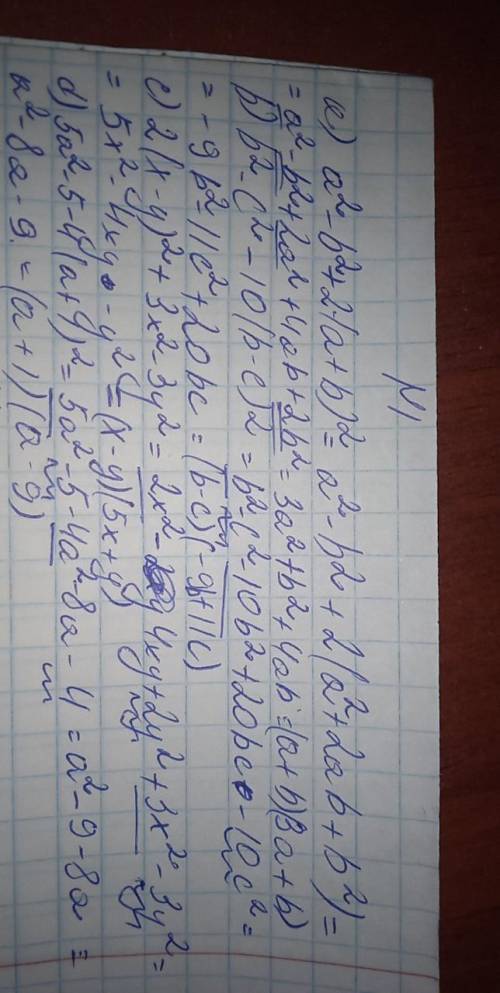 N1
a) a²-b²+2(a+b)²= a²-b²+2(a²+2ab+b²)=
= a²-b²+2a²+4ab+2b²=3a²+b²+4ab=(a+b)(3a+b)
b) b²-c²-10(b-c)²= b²-c²-10b²+20bc-10c²=
= -9b²-11c²+20bc=(b-c)(-9b+11c)
c) 2(x-y)²+3x²-3y²=2x²-4xy+2y²+3x²-3y²=
= 5x²-4xy-y²=(x-y)(5x+y)
d) 5a²-5-4(a+1)²=5a²-5-4a²-8a-4=a²-9-8a=
a²-8a-9=(a+1)(a-9)